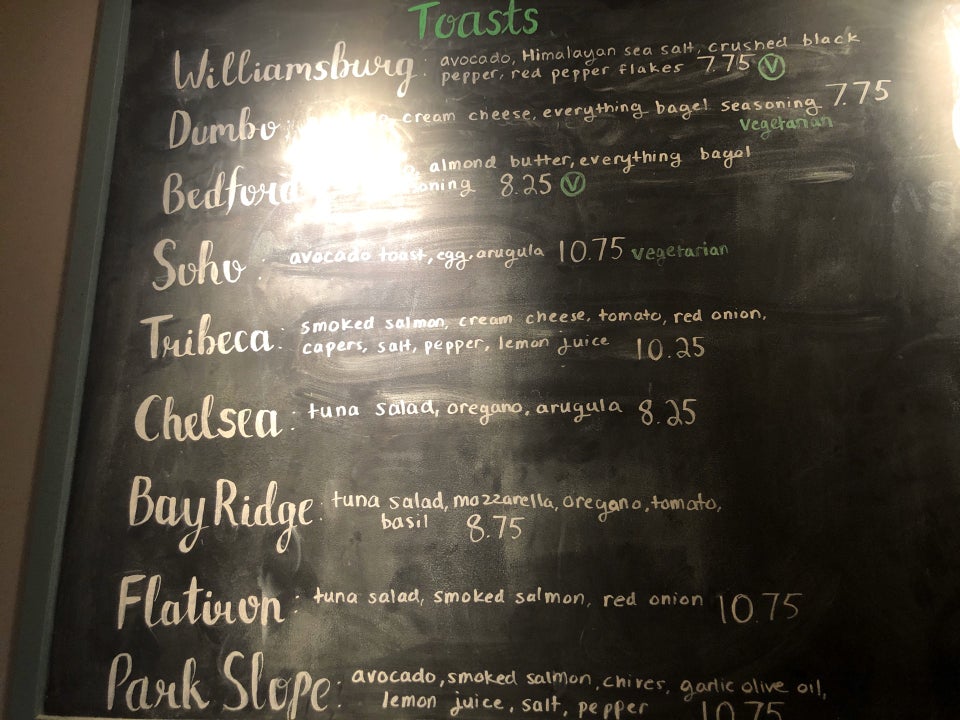 Toasts
Williamsburg: avocado, Himalayan sea salt, crushed black
pepper, red pepper flakes 7.75 V
Dumbo: cream cheese, everything bagel seasoning 7.75
vegetarian
Bedford almond butter, everything bagel
8.25 V
Soho: avocado toast, egg, arugula 10.75 vegetarian
Tribeca: smoked salmon, cream cheese, tomato, red onion,
capers, salt, pepper, lemon juice 10.25
Chelsea: tuna salad, oregano, arugula 8.25
Bay Ridge: tuna salad, mozzarella, oregano, tomato,
basil 8.75
Flatiron: tuna salad, smoked salmon, red onion 10.75
Park Slope: avocado, smoked salmon, chives, garlic olive oil,
lemon juice, salt, pepper 10.75